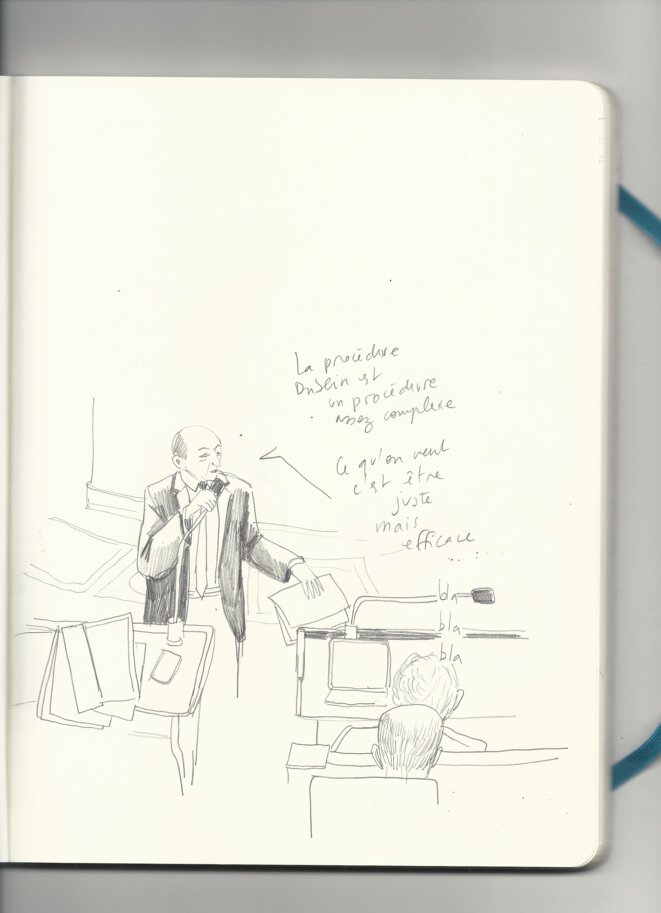 La procédure
Dublin est
un procédure
assez complexe
Ce qu'on veut
c'est être
juste
mais
efficace
.. : ..
bla
bla
bla